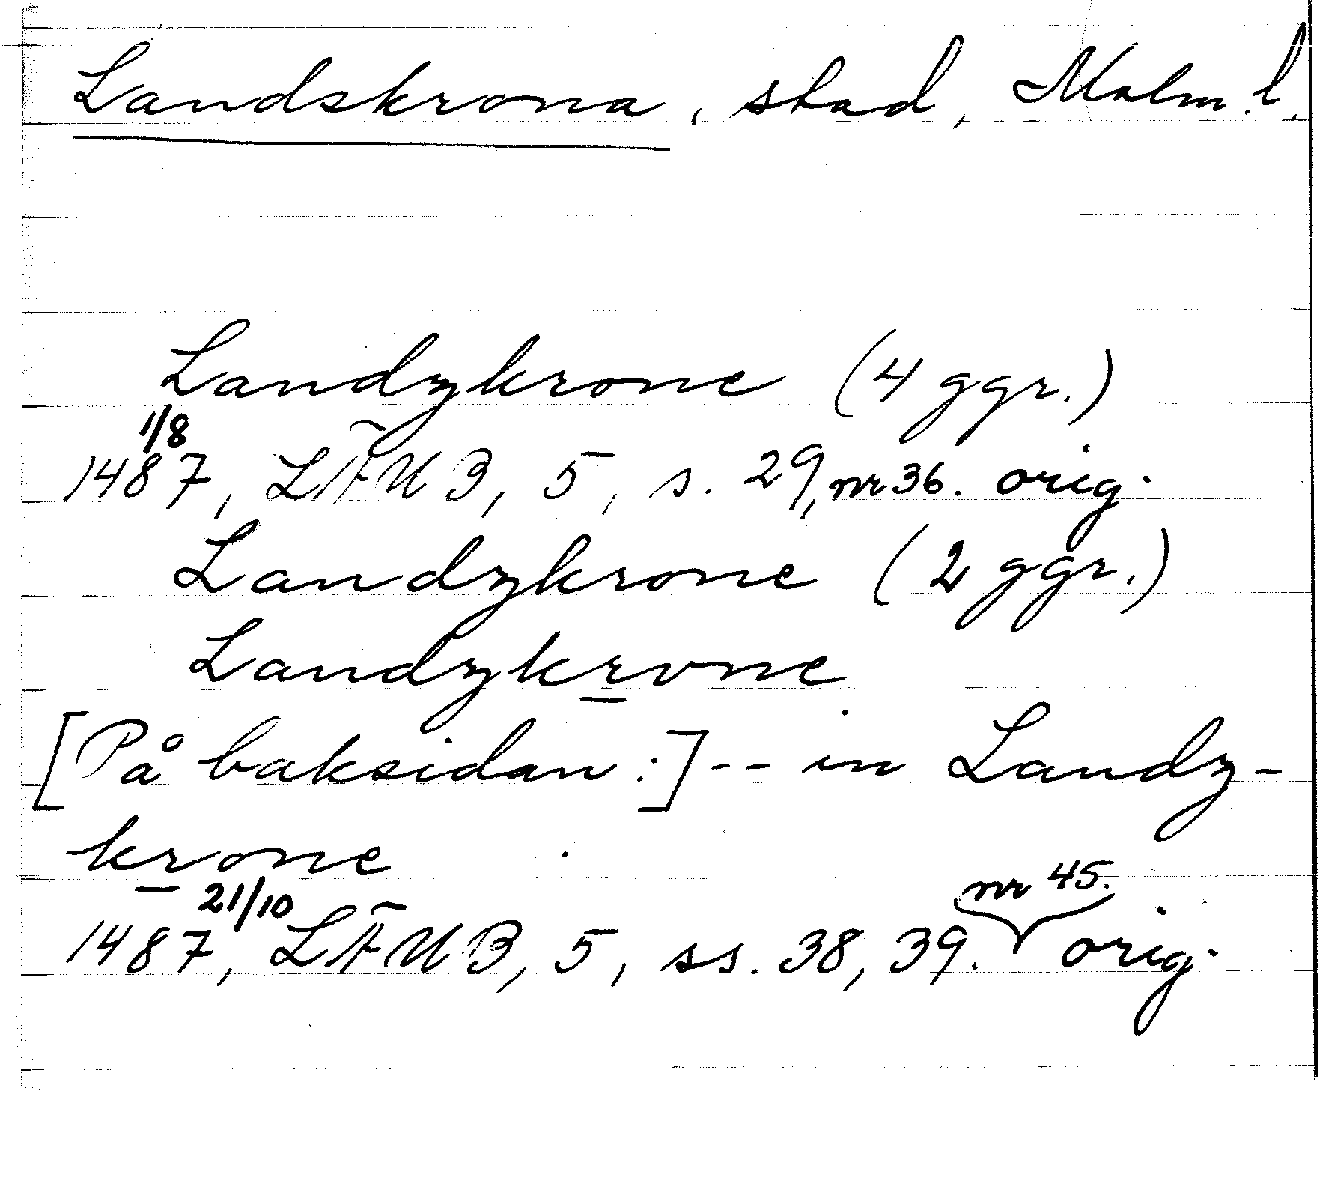 Landskrona, stad, Malm. l.
Landzkrone (4 ggr.)
1/8
1487, LÄUB, 5, s. 29, nr 36. orig.
Landzkrone (2 ggr.)
Landzkrone
[På baksidan:] -- in Landz-
krone
21/10
1487, LÄUB, 5, ss. 38, 39. nr 45. orig.